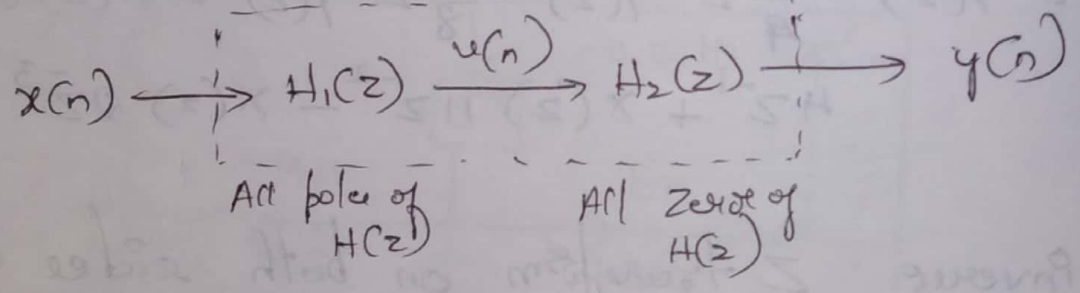 x(n) → H₁(z) u(n) → H₂(z) → y(n)
All poles of All zeros of
H(z) H(z)